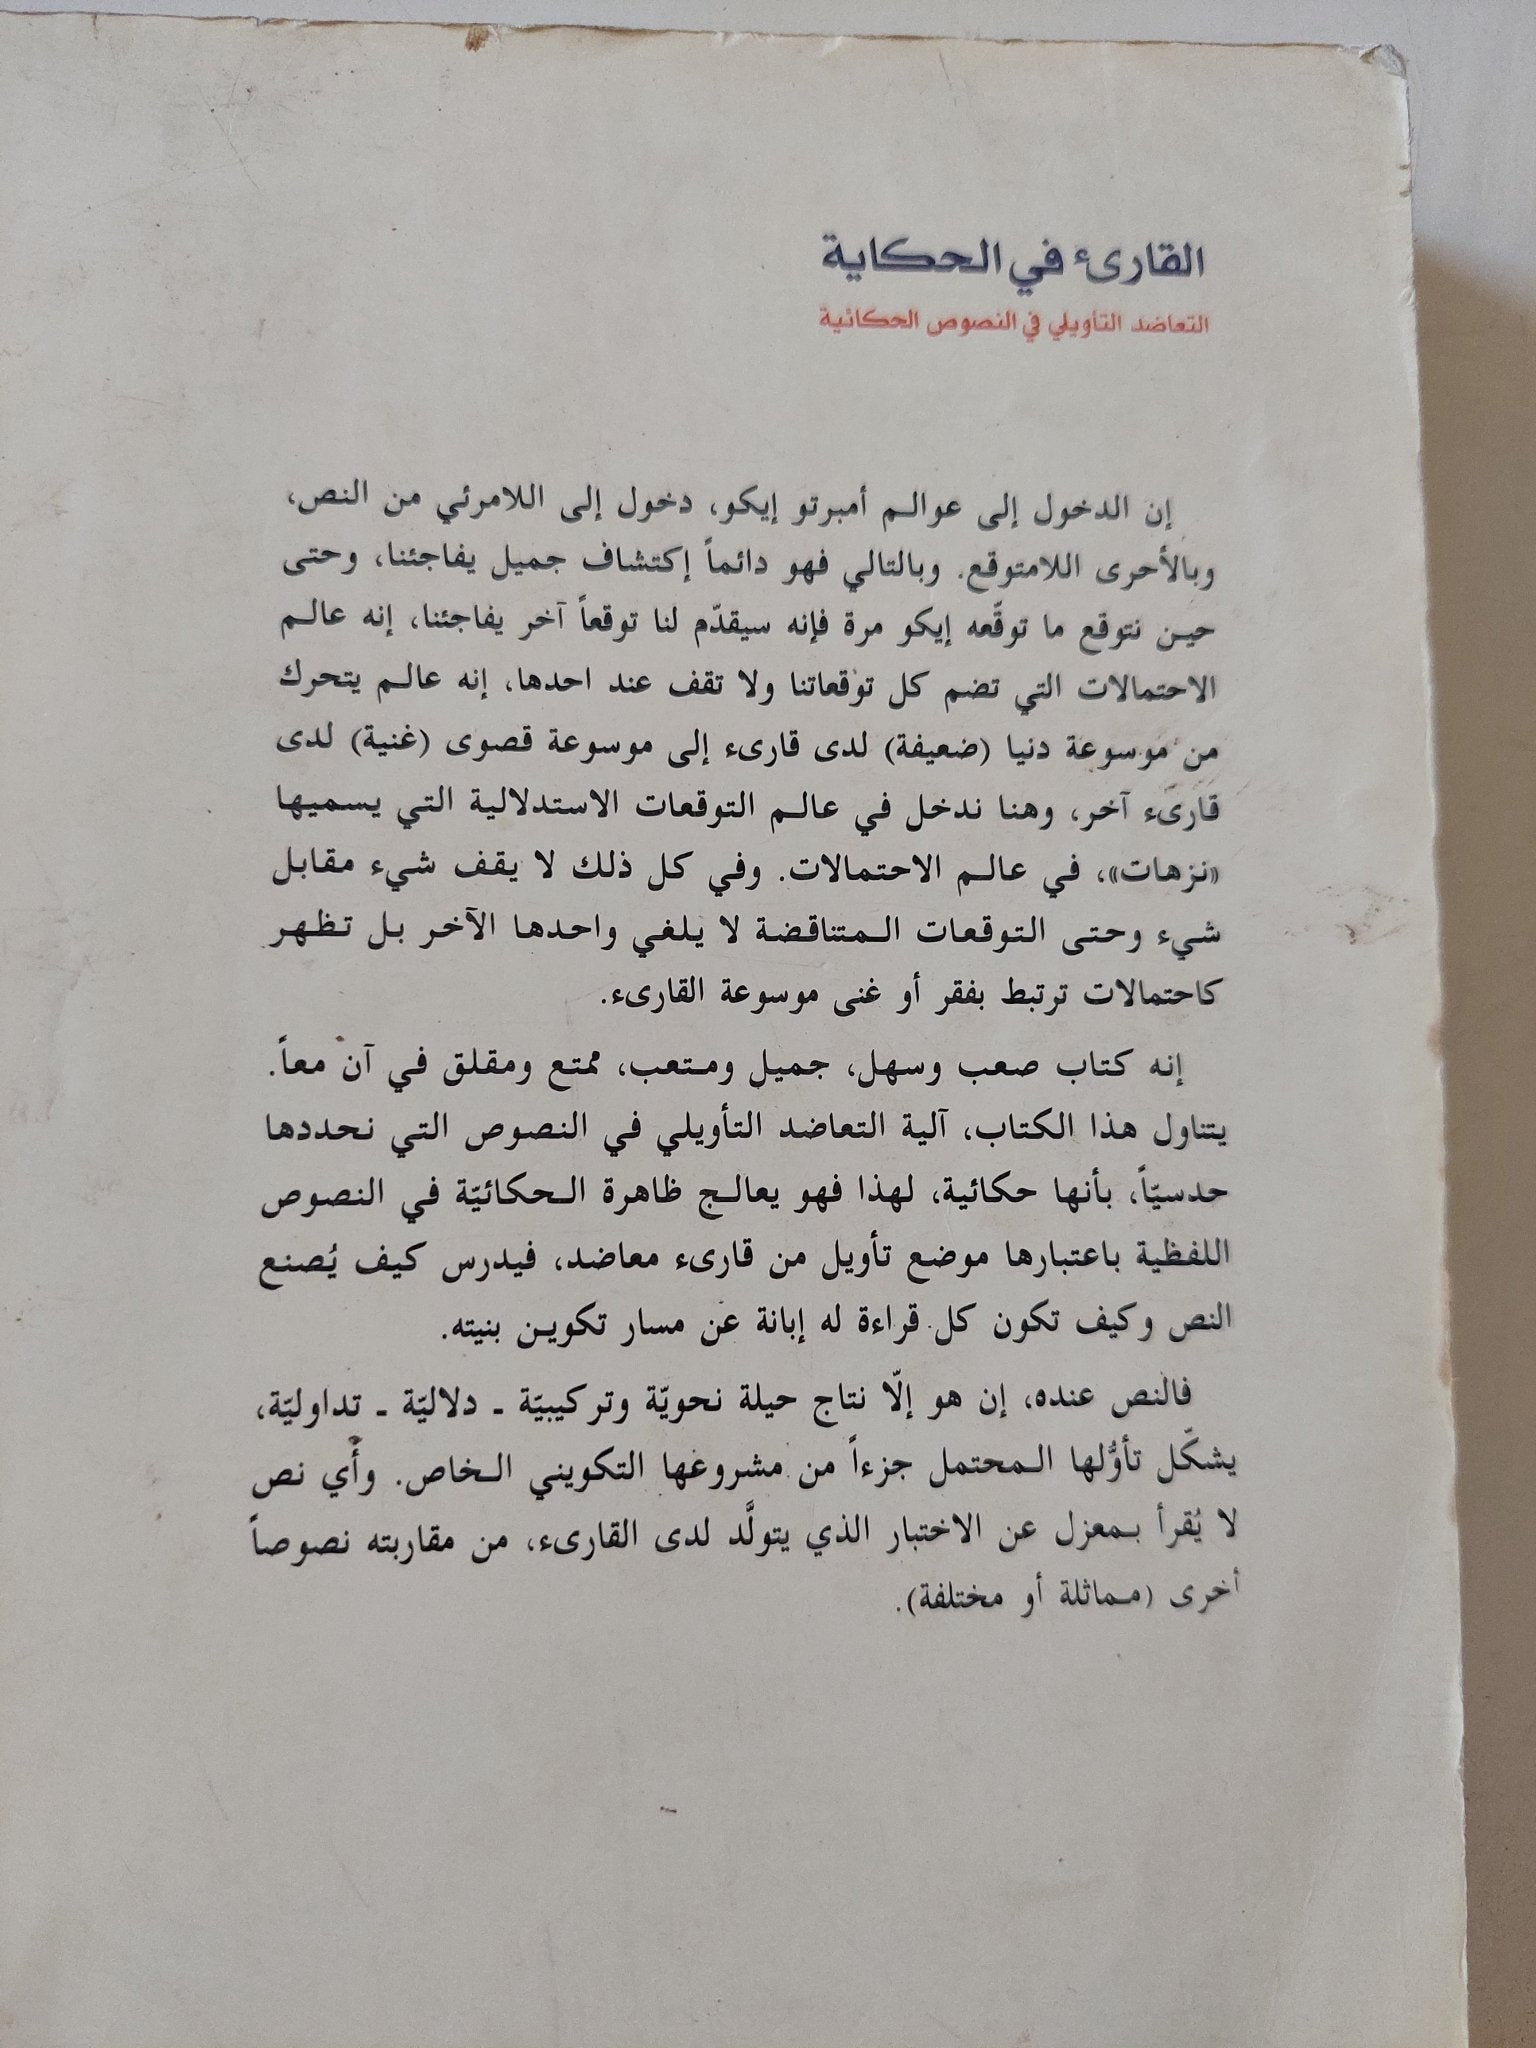 القارئ في الحكاية
التعاضد التأويلي في النصوص الحكائية
إن الدخول إلى عوالم أمبرتو إيكو، دخول إلى اللامرئي من النص،
وبالأحرى اللامتوقع. وبالتالي فهو دائماً إكتشاف جميل يفاجئنا، وحتى
حين نتوقع ما توقّعه إيكو مرة فإنه سيقدّم لنا توقعاً آخر يفاجئنا، إنه عالم
الاحتمالات التي تضم كل توقعاتنا ولا تقف عند احدها، إنه عالم يتحرك
من موسوعة دنيا (ضعيفة) لدى قارىء إلى موسوعة قصوى (غنية) لدى
قارىء آخر، وهنا ندخل في عالم التوقعات الاستدلالية التي يسميها
«نزهات»، في عالم الاحتمالات. وفي كل ذلك لا يقف شيء مقابل
شيء وحتى التوقعات المتناقضة لا يلغي واحدها الآخر بل تظهر
كاحتمالات ترتبط بفقر أو غنى موسوعة القارىء.
إنه كتاب صعب وسهل، جميل ومتعب، ممتع ومقلق في آن معاً.
يتناول هذا الكتاب، آلية التعاضد التأويلي في النصوص التي نحددها
حدسيّاً، بأنها حكائية، لهذا فهو يعالج ظاهرة الحكائيّة في النصوص
اللفظية باعتبارها موضع تأويل من قارىء معاضد، فيدرس كيف يُصنع
النص وكيف تكون كل قراءة له إبانة عن مسار تكوين بنيته.
فالنص عنده، إن هو إلّا نتاج حيلة نحويّة وتركيبيّة ـ دلاليّة ـ تداوليّة،
يشكّل تأوُّلها المحتمل جزءاً من مشروعها التكويني الخاص. وأي نص
لا يُقرأ بمعزل عن الاختبار الذي يتولَّد لدى القارىء، من مقاربته نصوصاً
أخرى (مماثلة أو مختلفة).